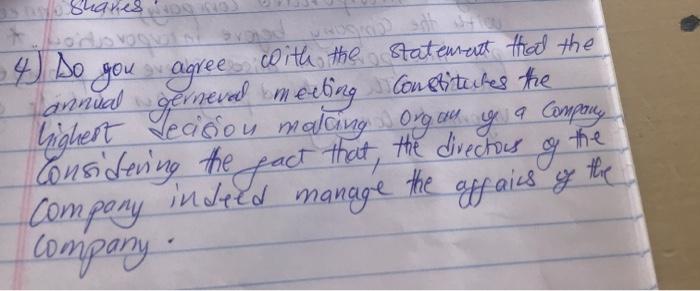 shares.
4) Do you agree with the statement that the
annual gerneral meeting Constitutes the
highest decision making organ of a Company
Considering the fact that, the directors of the
Company indeed manage the affairs of the
Company.